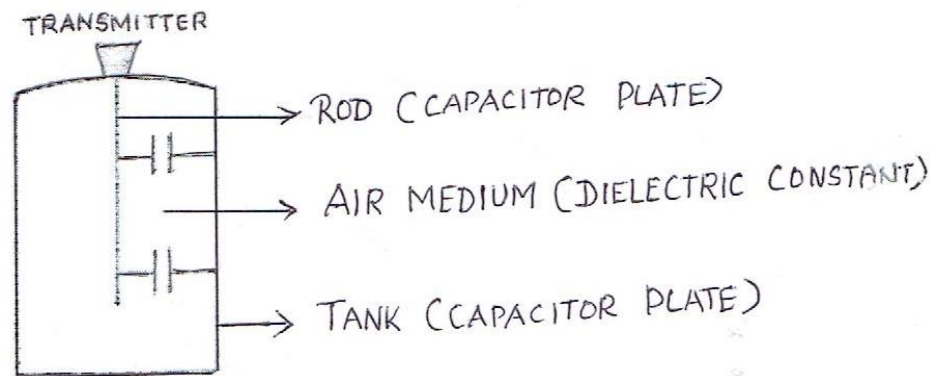 TRANSMITTER
ROD (CAPACITOR PLATE)
AIR MEDIUM (DIELECTRIC CONSTANT)
TANK (CAPACITOR PLATE)